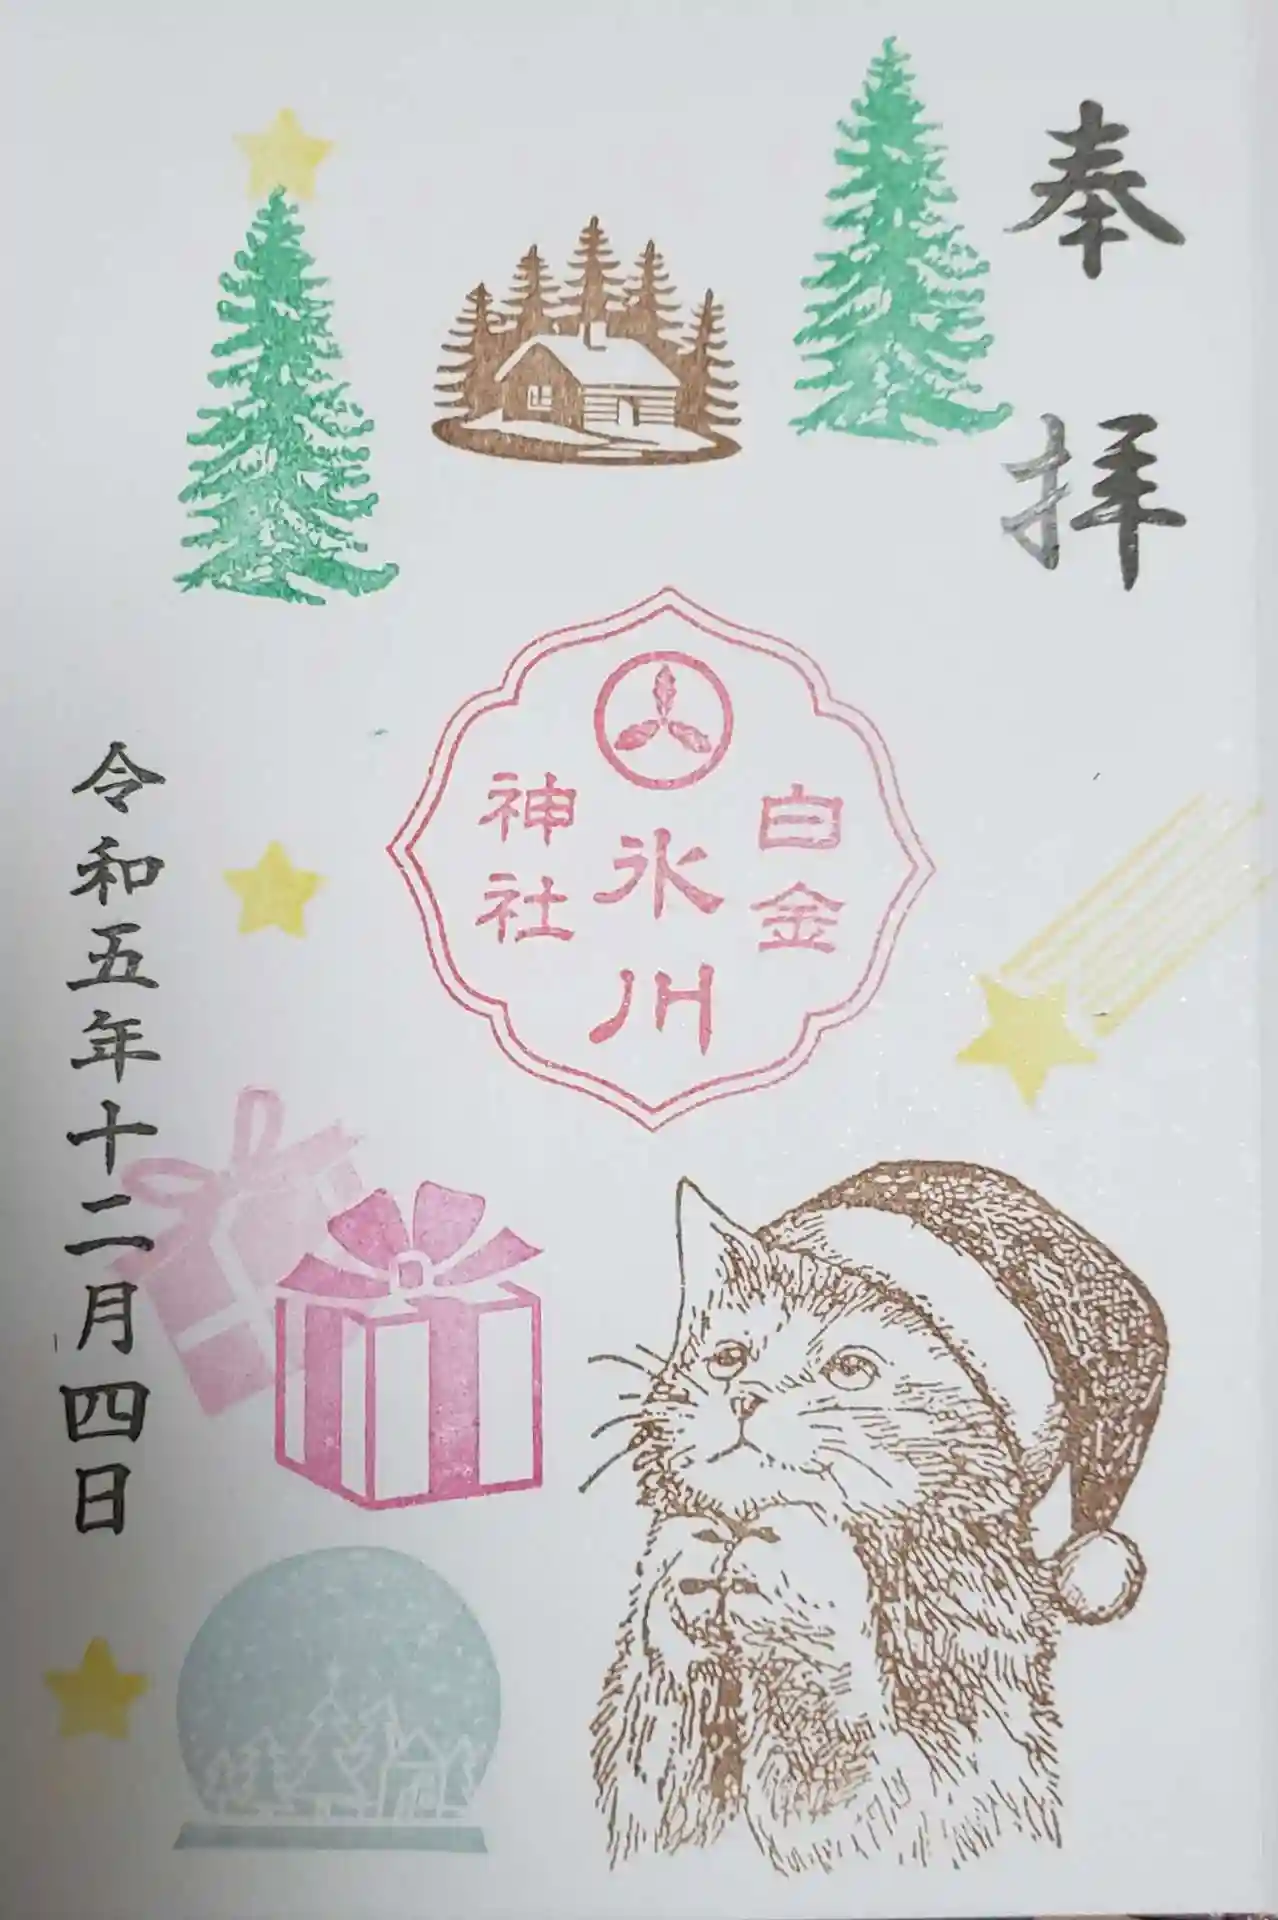 奉拝
白金
氷川
神社
令和五年十二月四日